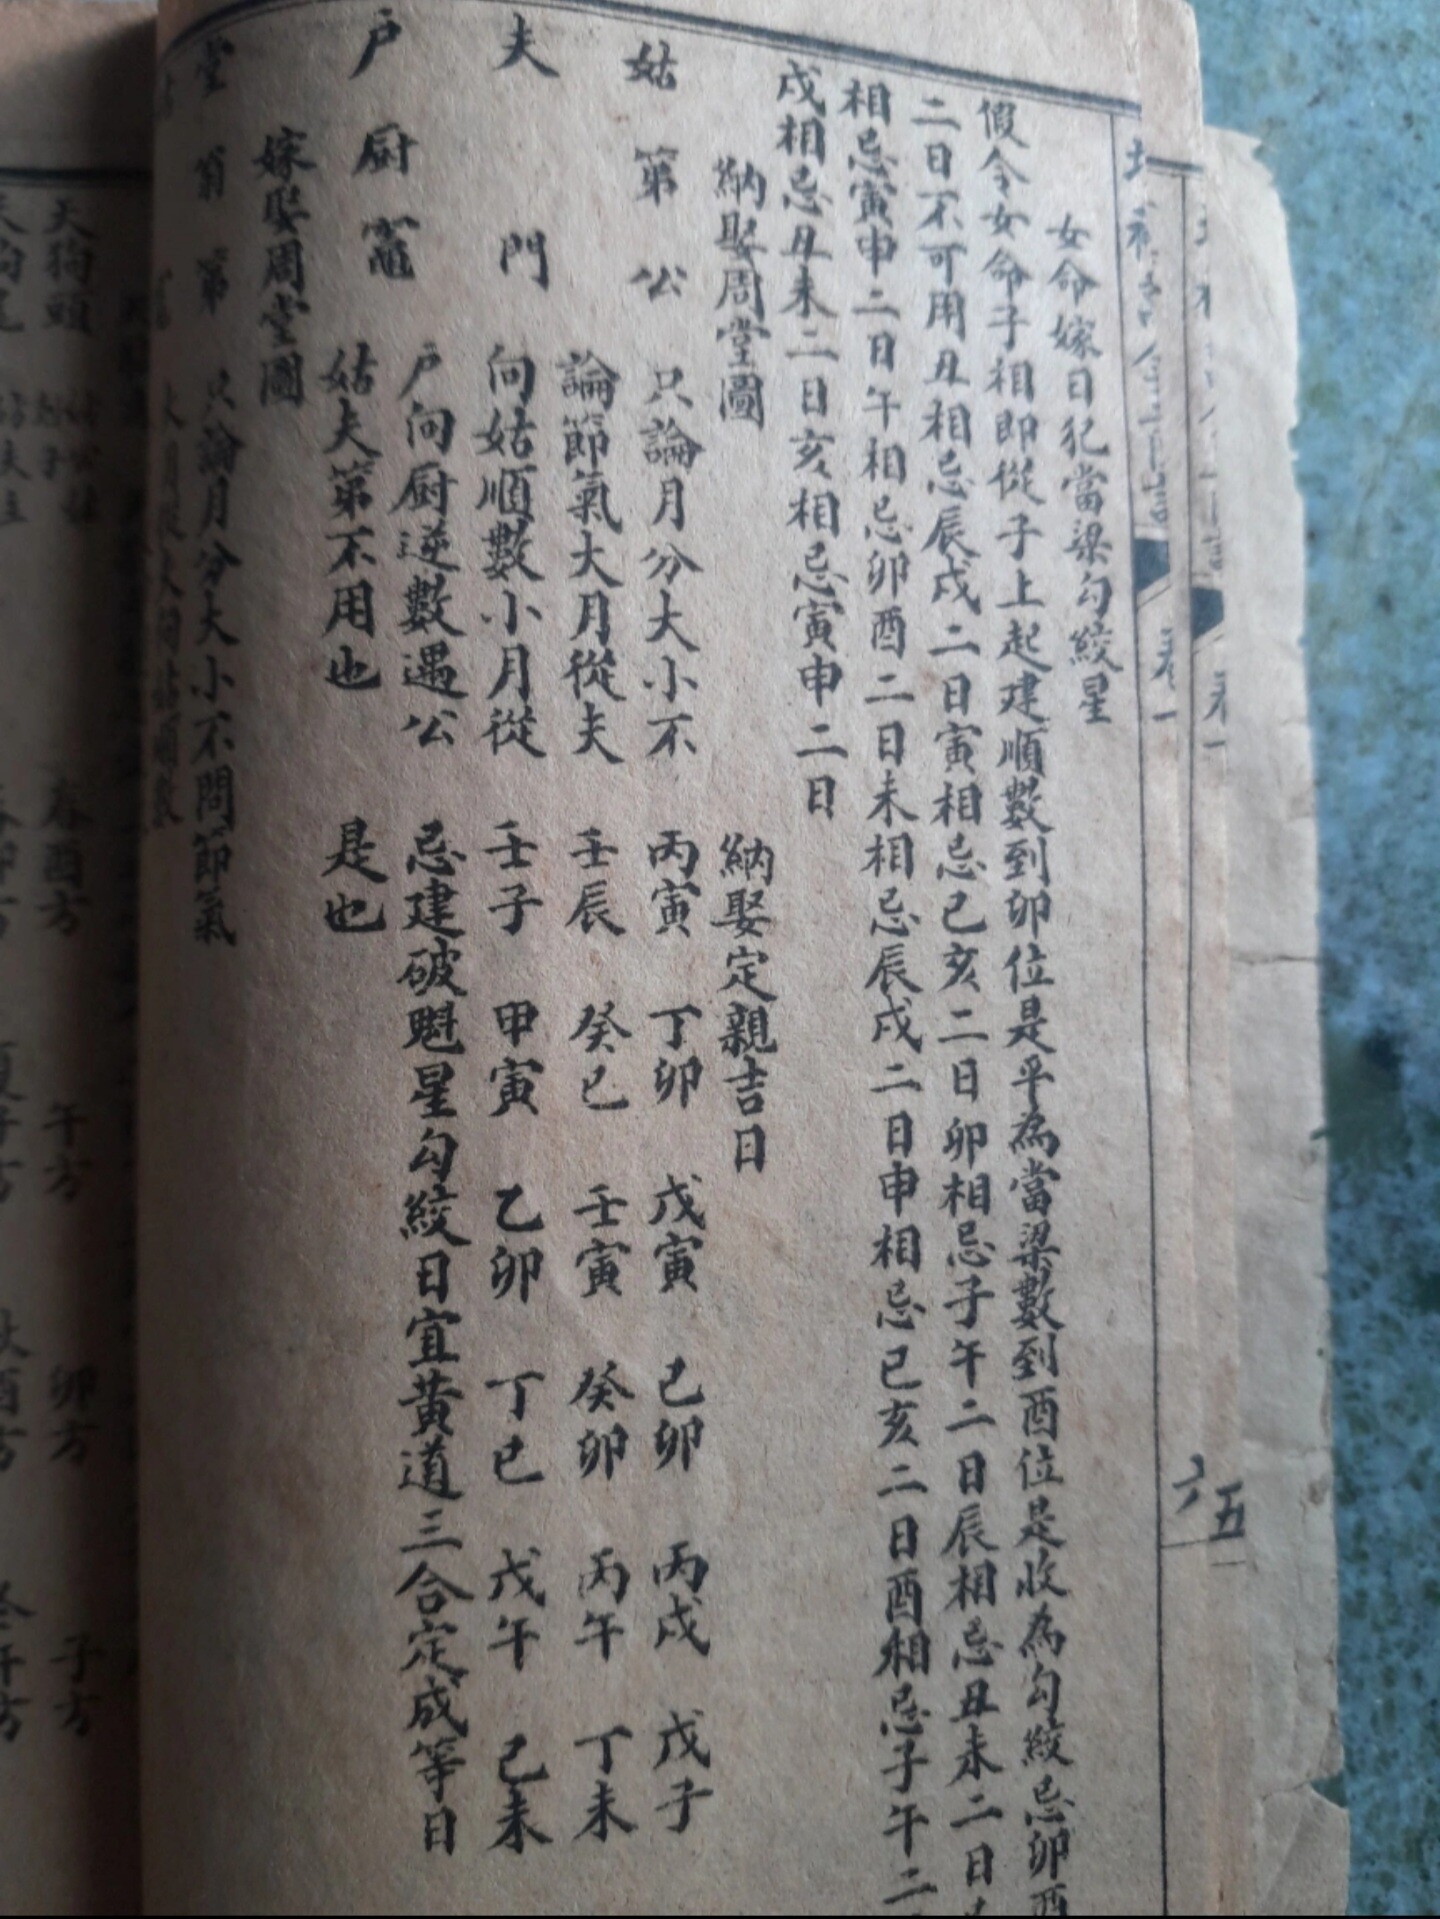 卷一
五
卷一
六
女命嫁日犯當梁勾絞星
假令女命子相即從子上起建順數到卯位是平為當梁數到酉位是收為勾絞忌卯酉
二日不可用丑相忌辰戌二日寅相忌巳亥二日卯相忌子午二日辰相忌丑未二日
相忌寅申二日午相忌卯酉二日未相忌辰戌二日申相忌巳亥二日酉相忌子午二
戌相忌丑未二日亥相忌寅申二日
納娶周堂圖
姑 第 公
夫 門
戶 厨 竈
只論月分大小不
論節氣大月從夫
向姑順數小月從
戶向厨逆數遇公
姑夫第不用也
納娶定親吉日
丙寅 丁卯 戊寅 己卯 丙戌 戊子
壬辰 癸巳 壬寅 癸卯 丙午 丁未
壬子 甲寅 乙卯 丁巳 戊午 己未
忌建破魁星勾絞日宜黃道三合定成等日
是也
嫁娶周堂圖
堂 翁 第
只論月分大小不問節氣
天狗頭
春酉方 午方 卯方 子方